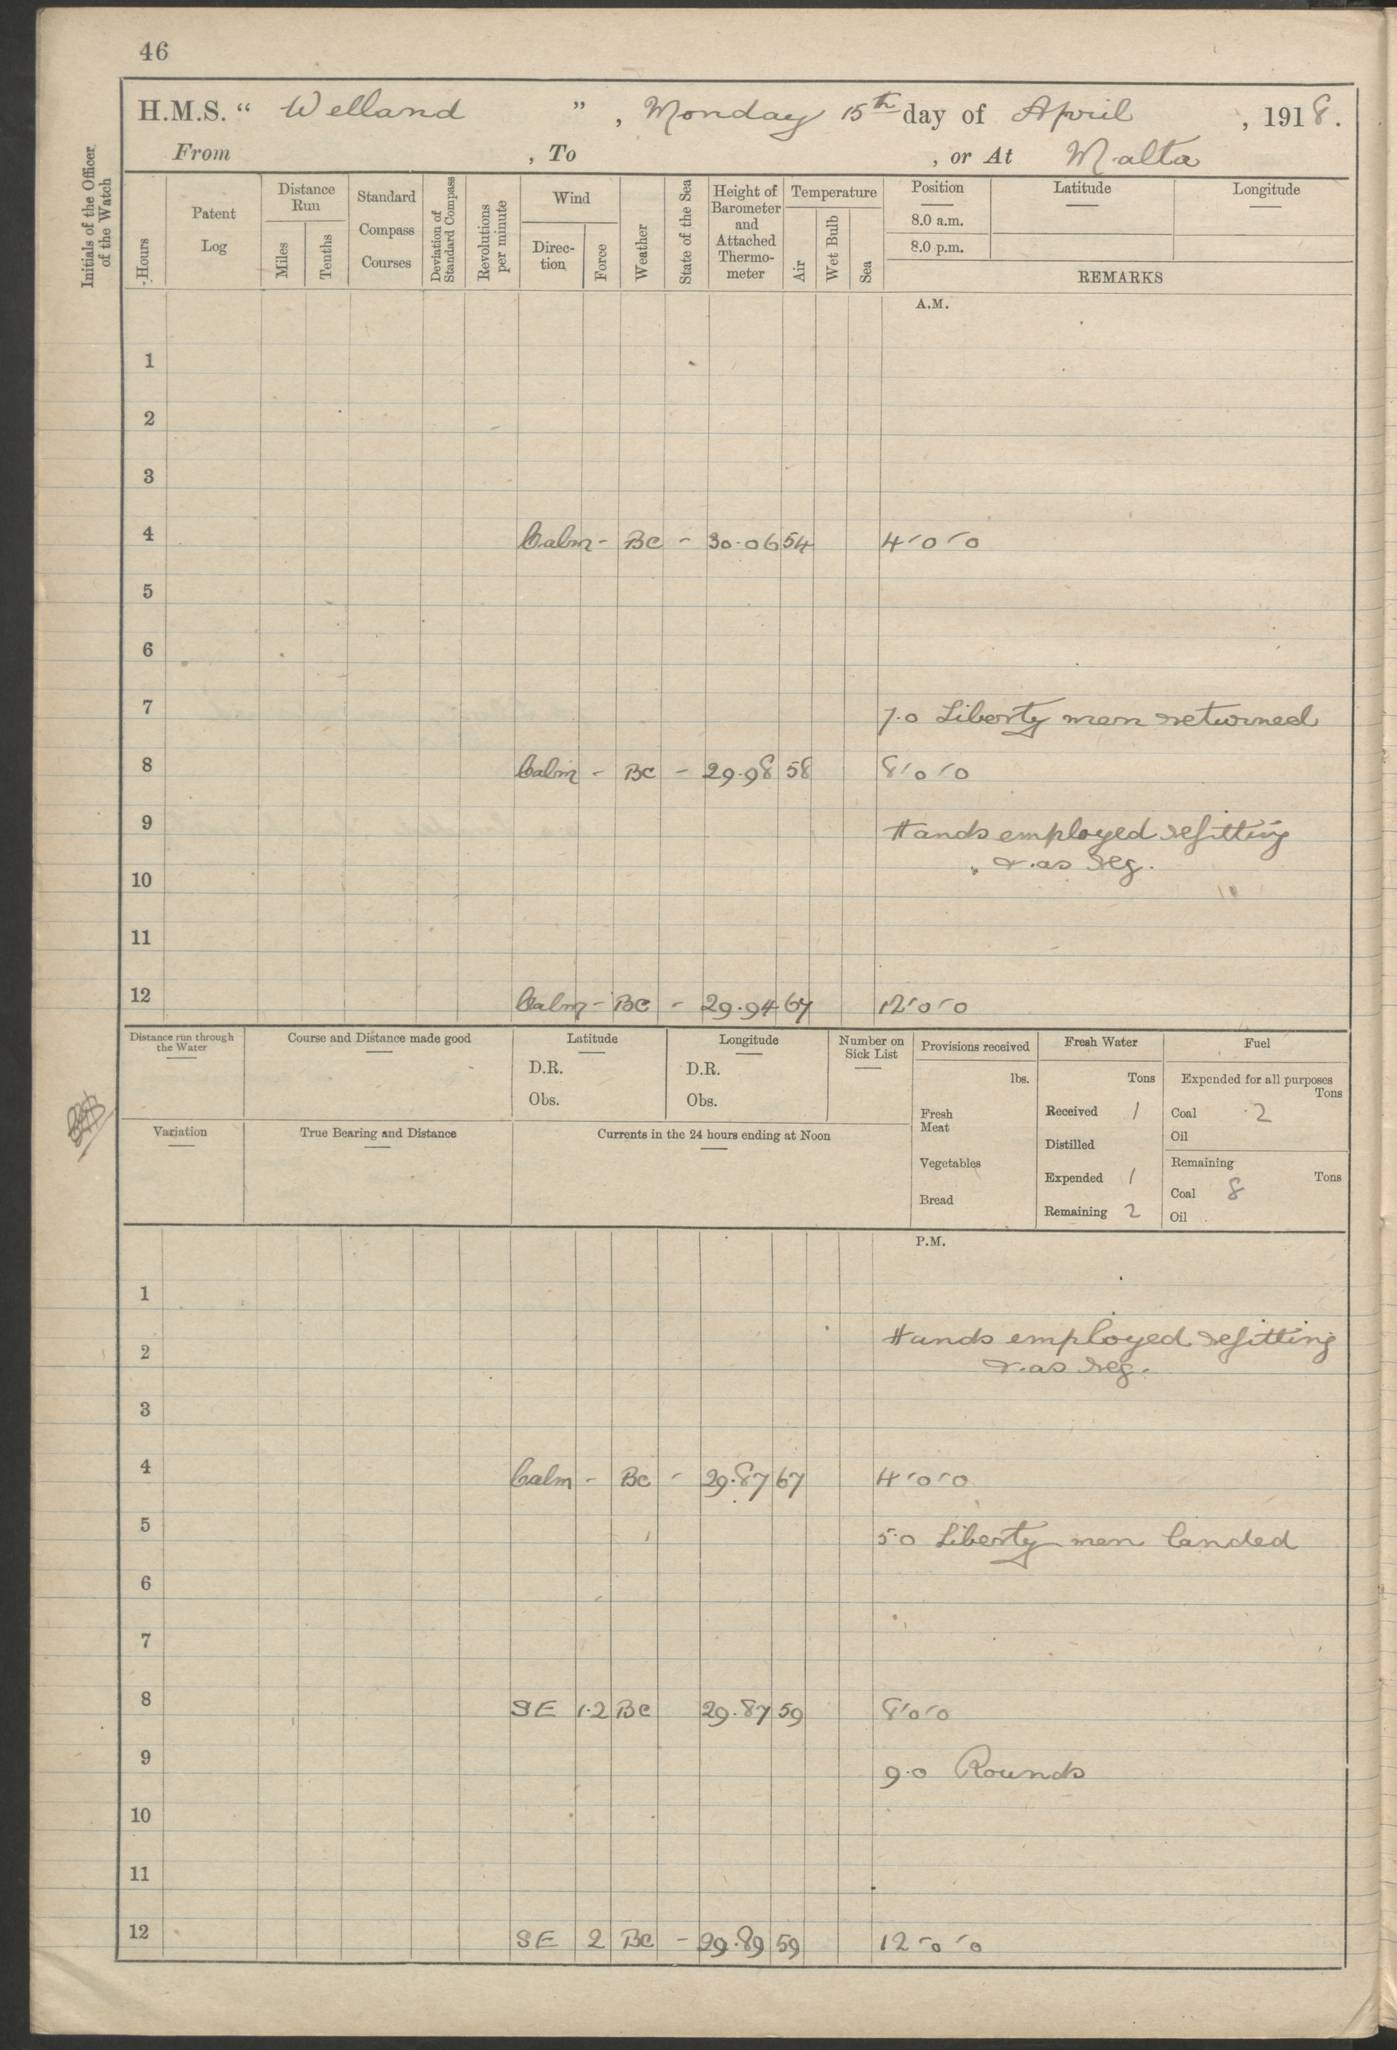 46
H.M.S. “ Welland ”, Monday 15th day of April, 1918.
From , To , or At Malta
Initials of the Officer of the Watch
Hours
Patent Log
Distance Run
Miles
Tenths
Standard Compass Courses
Deviation of Standard Compass
Revolutions per minute
Wind
Direc-tion
Force
Weather
State of the Sea
Height of Barometer and Attached Thermo-meter
Temperature
Air
Wet Bulb
Sea
Position
8.0 a.m.
8.0 p.m.
Latitude
Longitude
REMARKS
A.M.
1
2
3
4 Calm - BC - 30.06 54 4'0'0
5
6
7 7.0 Liberty men returned
8 Calm - BC - 29.98 58 8'0'0
9 Hands employed refitting
& as reg.
10
11
12 Calm - BC - 29.94 67 12'0'0
Distance run through the Water
Course and Distance made good
Latitude
D.R.
Obs.
Longitude
D.R.
Obs.
Number on Sick List
Variation
True Bearing and Distance
Currents in the 24 hours ending at Noon
Provisions received
lbs.
Fresh Meat
Vegetables
Bread
Fresh Water
Tons
Received 1
Distilled
Expended 1
Remaining 2
Fuel
Expended for all purposes
Tons
Coal 2
Oil
Remaining
Tons
Coal 8
Oil
P.M.
1
2 Hands employed refitting
& as reg.
3
4 Calm - BC - 29.87 67 4'0'0
5 5.0 Liberty men landed
6
7
8 SE 1.2 BC 29.87 59 8'0'0
9 9.0 Rounds
10
11
12 SE 2 BC - 29.89 59 12'0'0